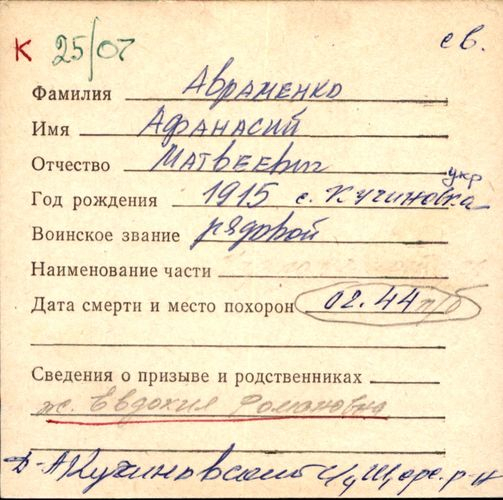 К 25/07 св.
Фамилия Авраменко
Имя Афанасий
Отчество Матвеевич
укр
Год рождения 1915 с. Кучиновка
Воинское звание рядовой
Наименование части
Дата смерти и место похорон 02.44 п/б
Сведения о призыве и родственниках
ж. Евдокия Романовна
Кучиновский Щорс. р-н